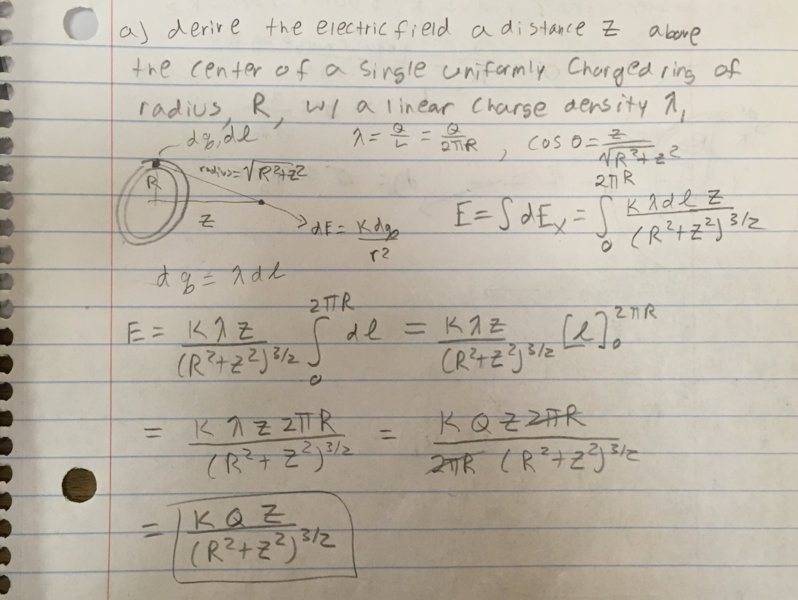 a) derive the electric field a distance z above
the center of a single uniformly charged ring of
radius, R, w/ a linear charge density λ,
dq, dl
λ = Q/L = Q/2πR , cos θ = z/√R²+z²
radius = √R²+z²
R
z
dE = K dq/r²
E = ∫ dEx = ∫₀^2πR K λ dl z/(R²+z²)^3/2
dq = λ dl
E = K λ z/(R²+z²)^3/2 ∫₀^2πR dl = K λ z/(R²+z²)^3/2 [l]₀^2πR
= K λ z 2πR/(R²+z²)^3/2 = K Q z 2πR/2πR (R²+z²)^3/2
= K Q z/(R²+z²)^3/2